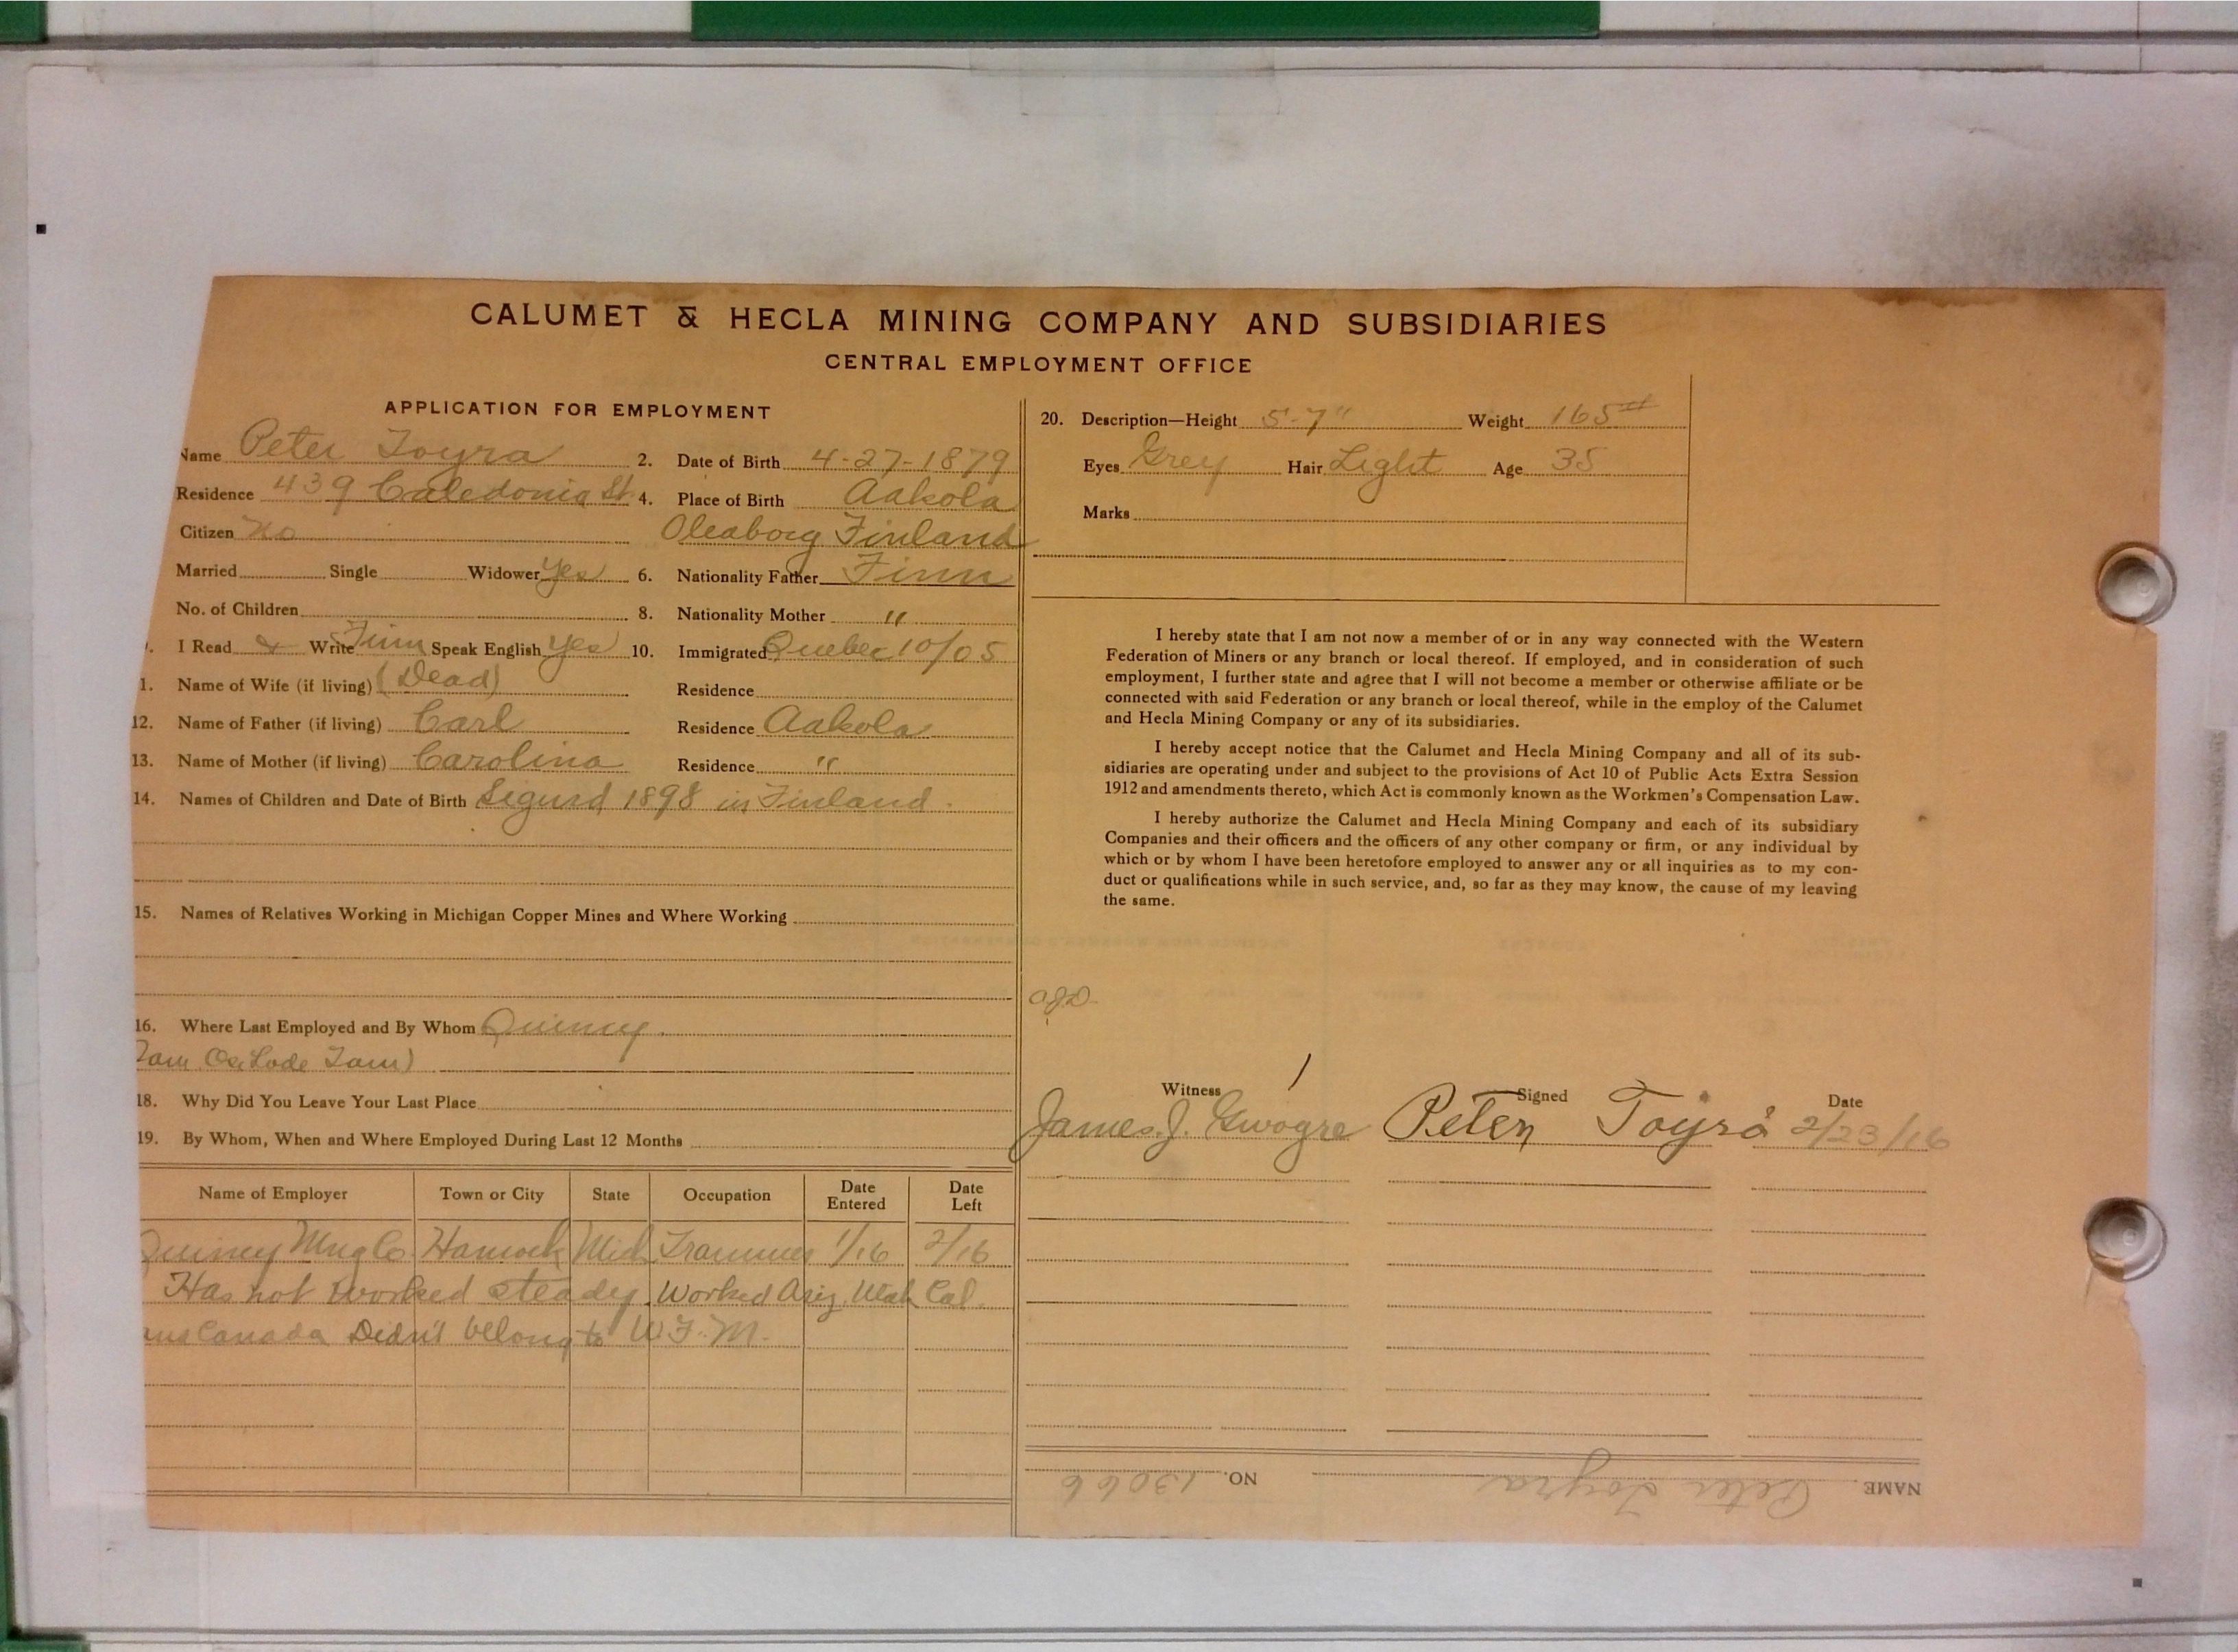 CALUMET & HECLA MINING COMPANY AND SUBSIDIARIES
CENTRAL EMPLOYMENT OFFICE
APPLICATION FOR EMPLOYMENT
Name Peter Toyra 2. Date of Birth 4-27-1879
Residence 439 Caledonia St. 4. Place of Birth Aakola
Citizen No Oleaborg Finland
Married Single Widower Yes 6. Nationality Father Finn
No. of Children 8. Nationality Mother "
I Read & Write Finn Speak English Yes 10. Immigrated Quebec 10/05
1. Name of Wife (if living) (Dead) Residence
12. Name of Father (if living) Carl Residence Aakola
13. Name of Mother (if living) Carolina Residence "
14. Names of Children and Date of Birth Sigurd 1898 in Finland.
15. Names of Relatives Working in Michigan Copper Mines and Where Working
16. Where Last Employed and By Whom Quincy.
Tam Lode Tam)
18. Why Did You Leave Your Last Place
19. By Whom, When and Where Employed During Last 12 Months
Name of Employer Town or City State Occupation Date Entered Date Left
Quincy Mng Co. Hancock Mich Trammer 1/16 2/16
Has not worked steady. Worked Ariz. Utah Cal.
and Canada Didn't belong to W.F.M.
20. Description—Height 5-7" Weight 165#
Eyes Grey Hair Light Age 35
Marks
I hereby state that I am not now a member of or in any way connected with the Western
Federation of Miners or any branch or local thereof. If employed, and in consideration of such
employment, I further state and agree that I will not become a member or otherwise affiliate or be
connected with said Federation or any branch or local thereof, while in the employ of the Calumet
and Hecla Mining Company or any of its subsidiaries.
I hereby accept notice that the Calumet and Hecla Mining Company and all of its sub-
sidiaries are operating under and subject to the provisions of Act 10 of Public Acts Extra Session
1912 and amendments thereto, which Act is commonly known as the Workmen's Compensation Law.
I hereby authorize the Calumet and Hecla Mining Company and each of its subsidiary
Companies and their officers and the officers of any other company or firm, or any individual by
which or by whom I have been heretofore employed to answer any or all inquiries as to my con-
duct or qualifications while in such service, and, so far as they may know, the cause of my leaving
the same.
Witness Signed Date
James. J. Peter Toyrä 2/23/16
NAME Peter Toyra NO. 13066